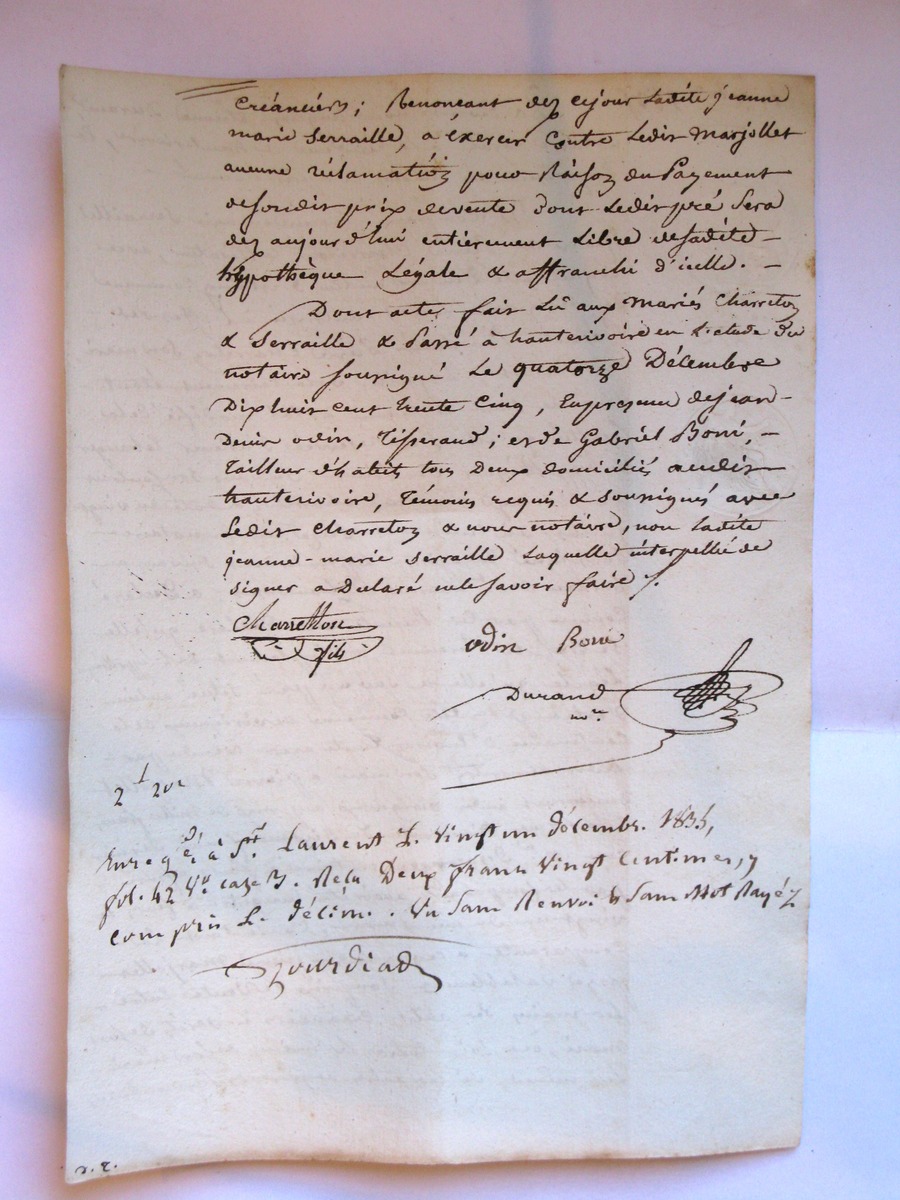 créanciers ; Renonçant dez cejour Ladite jeanne
marie Serraille, à éxercer Contre Ledit Marjollet
aucune réclamation pour Raison du Payement
desondit prix devente dont Ledit pré Sera
dez aujourd'hui entièrement Libre desadite
hypothèque Légale & affranchi d'icelle. -
Dont acte fait Lû aux mariés Charreton
& Serraille & Passé à hauterivoire en L'etude du
notaire soussigné Le quatorze Décembre
Dix huit cent trente cinq, En presence de jean-
Denis odin, Tisserand ; et de Gabriel Boni, -
Tailleur d'habits tous Deux domiciliés audit
hauterivoire, Témoins requis & soussignés avec
Ledit Charreton & nous notaire, non ladite
jeanne-marie Serraille Laquelle interpellée de
signer a Déclaré ne le savoir faire ./.
Charretton
fils
odin Boni
Durand
nore
2f 20c
Enregé à St. Laurent L. vingt un décembr. 1835,
fol. 42 Vo case 3. Reçu Deux francs vingt Centimes, y
compris L. décim. . Vu Sans Renvoi & Sans Mot Rayé